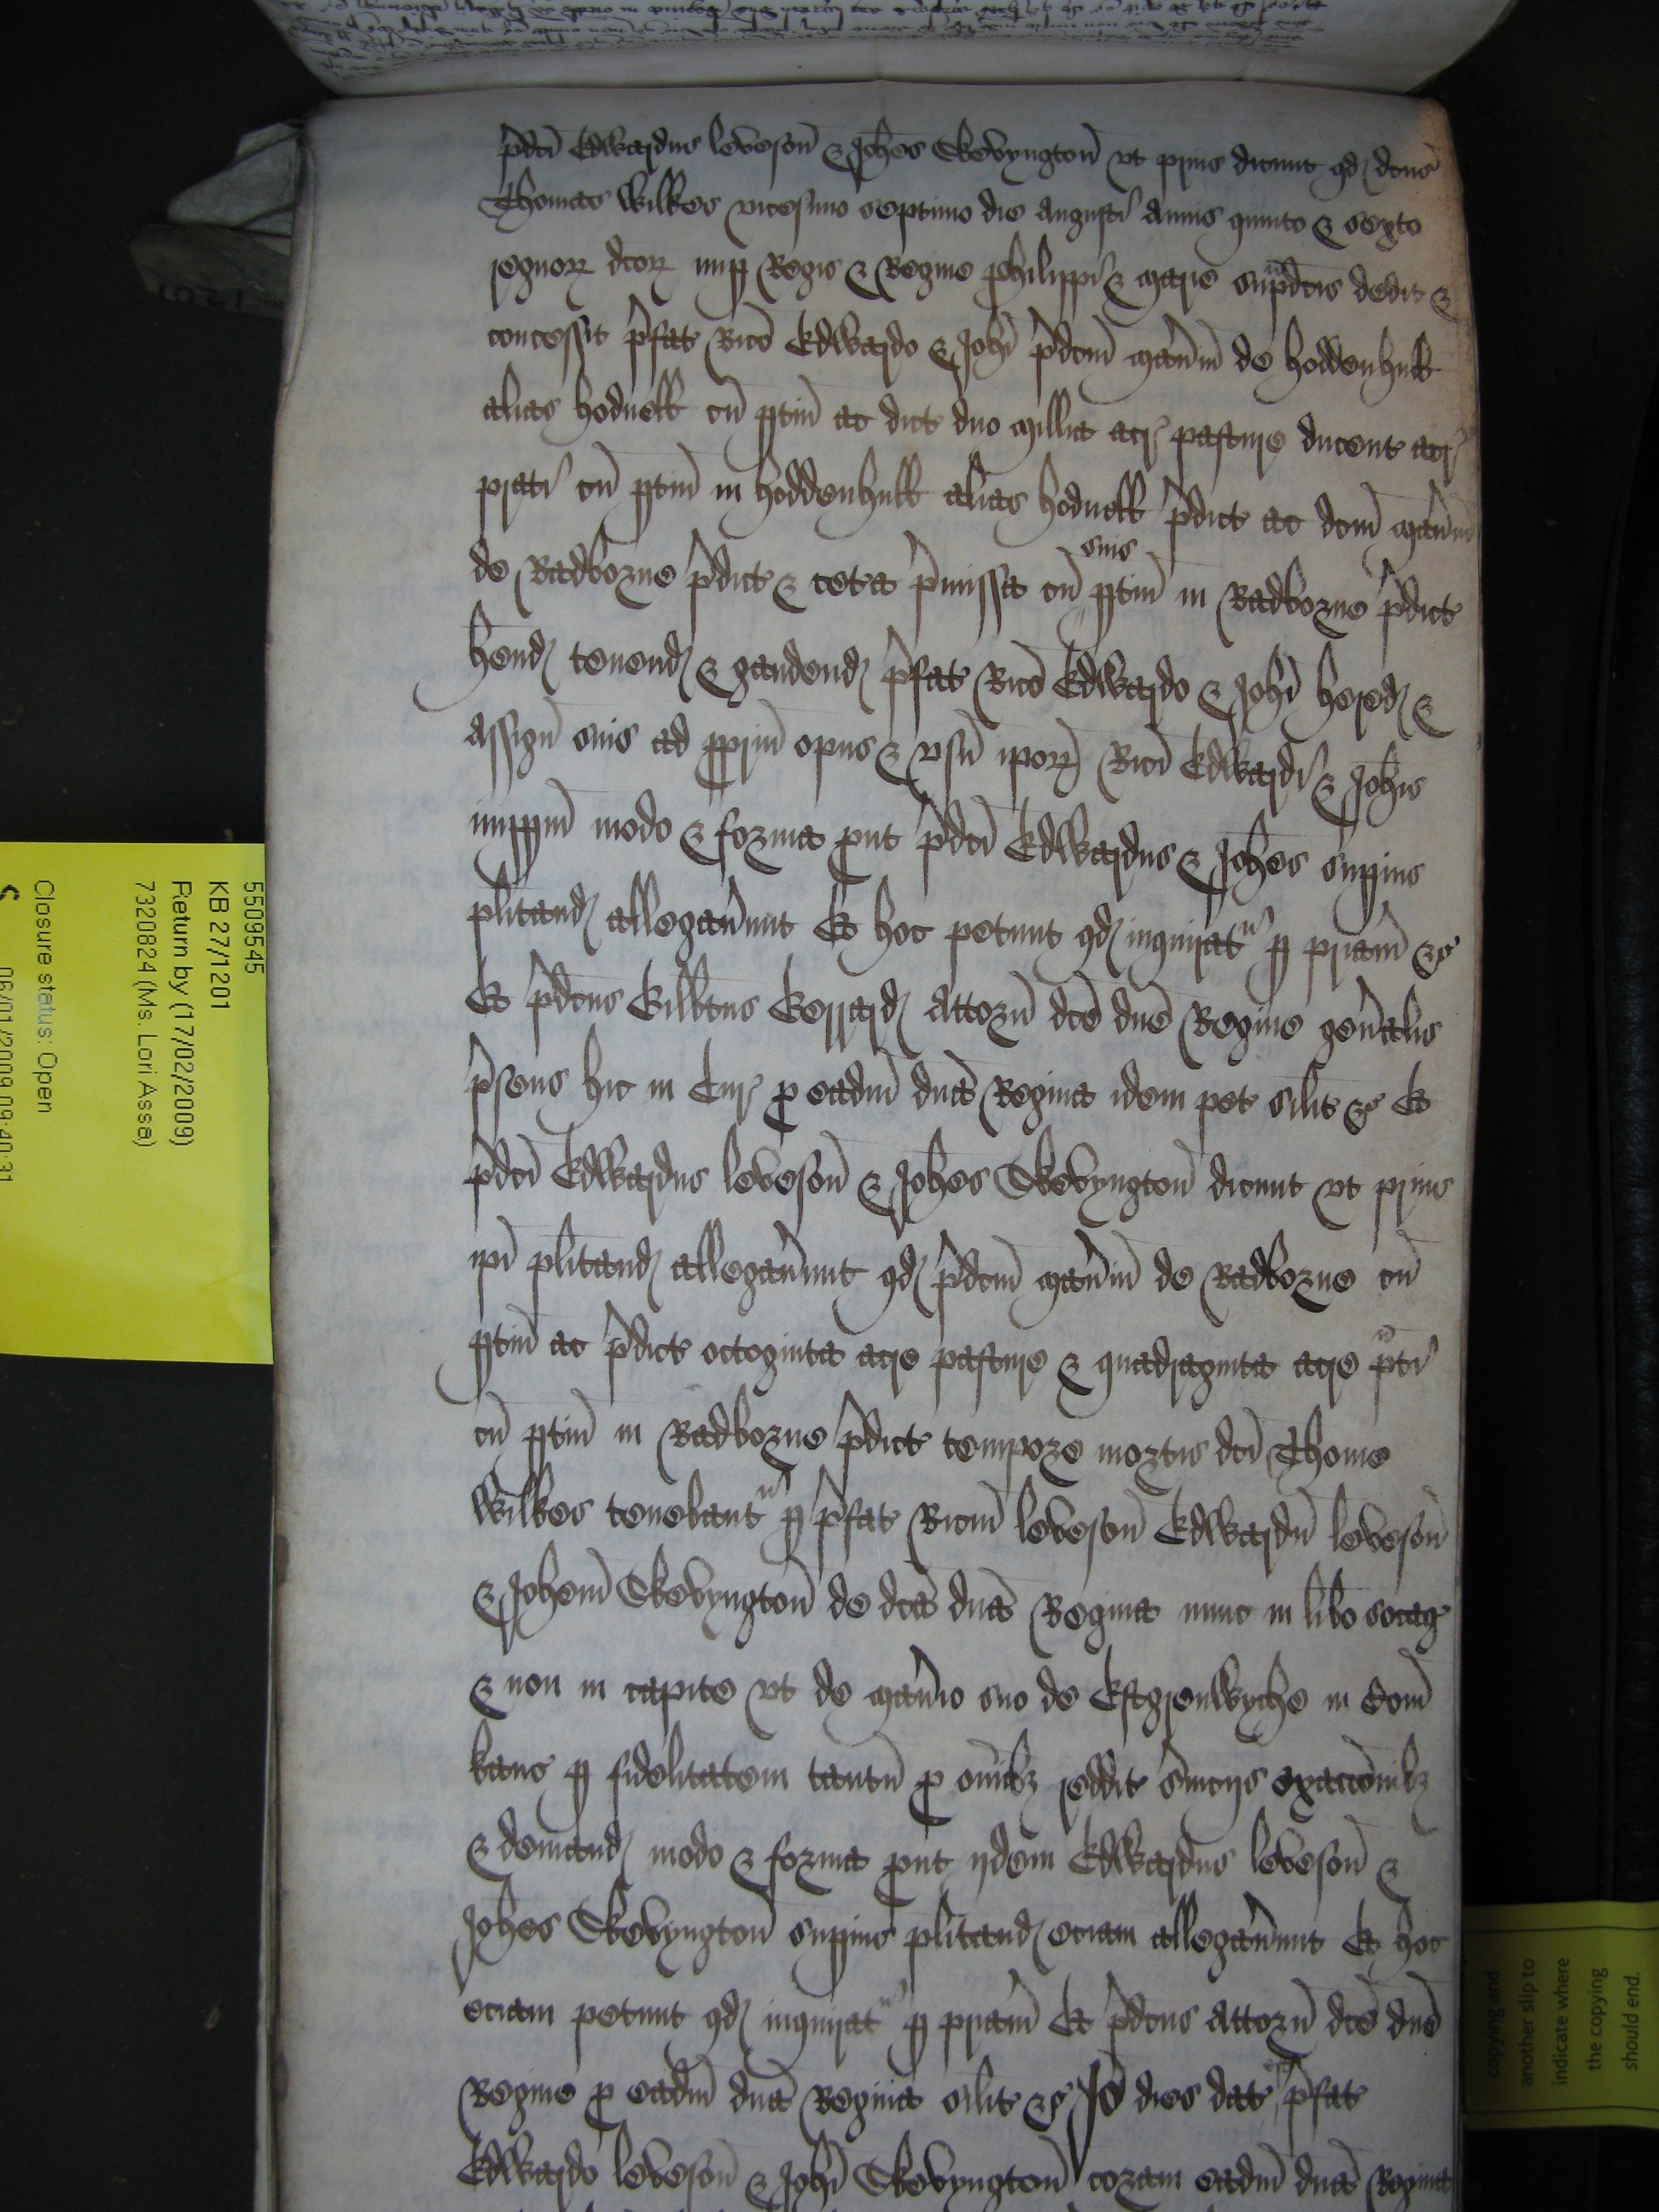 p̄dc̄i Edwardus leveson̄ & Joħes Skevyngton̄ vt prius dicunt qd dc̄us
Thomas Wilkes vicesimo septimo die Augusti Annis quinto & sexto
regnoꝝ dc̄oꝝ nup̱ Regis & Regine Philippi & Marie sup̱dc̄is dedit &
concessit p̄fat Ric̄o Edwardo & Joħi p̄dc̄m man̄iu de hoddenhull
alias hodnell cū p̱tin̄ ac dict duo millia acr pasture ducent acr
prati cū p̱tin̄ in hoddenhull alias hodnell p̄dict ac dc̄m man̄iu
de Radborne p̄dict & cet̄a p̄missa cū suis p̱tin̄ in Radborne p̄dict
hend tenend & gaudend p̄fat Ric̄o Edwardo & Joħi hered &
assign̄ suis ad p̱p̱riū opus & vsū ip̄oꝝ Ric̄i Edwardi & Joħis
imp̱p̱m̄ modo & forma put p̄dc̄i Edwardus & Joħes sup̱ius
pl̄itand allegav̄unt Et hoc petunt qd inquirat^r p̱ pr̄iam &c
Et p̄dc̄us Gilb̄tus Gerrard Attorn̄ dc̄e dn̄e Regine gen̄alis
p̄sens hic in Cur p̱ eadm̄ dn̄a Regina idem pet sil̄it &c Et
p̄dc̄i Edwardus leveson̄ & Joħes Skevyngton̄ dicunt vt prius
ip̄i pl̄itand allegav̄unt qd p̄dc̄m man̄iu de Radborne cū
p̱tin̄ ac p̄dict octoginta acre pasture & quadraginta acre p^ati
cū p̱tin̄ in Radborne p̄dict tempore mortis dc̄i Thome
Wilkes tenebant^r p̱ p̄fat Ric̄m leveson̄ Edwardū leveson̄
& Joħem̄ Skevyngton̄ de dc̄a dn̄a Regina nunc in lib̄o socag
& non in capite vt de man̄io suo de Estgrenwyche in Com̄
kanc p̱ fidelitatem tantū p̱ om̄ib3 reddit s̄viciis exacc̄oīb3
& demand modo & forma put ijdem Edwardus leveson̄ &
Joħes Skevyngton̄ sup̱ius pl̄itand eciam allegav̄unt Et hoc
eciam petunt qd inquirat^r p̱ pr̄iam Et p̄dc̄us Attorn̄ dc̄e dn̄e
Regine p̱ eadm̄ dn̄a Regina sil̄it &c Jō dies dat est p̄fat
Edwardo leveson̄ & Joħi Skevyngton̄ coram eadm̄ dn̄a Regina
5509545
KB 27/1201
Return by (17/02/2009)
7320824 (Ms. Lori Assa)
Closure status: Open
06/01/2009 09:40:31
copying and
another slip to
indicate where
the copying
should end.